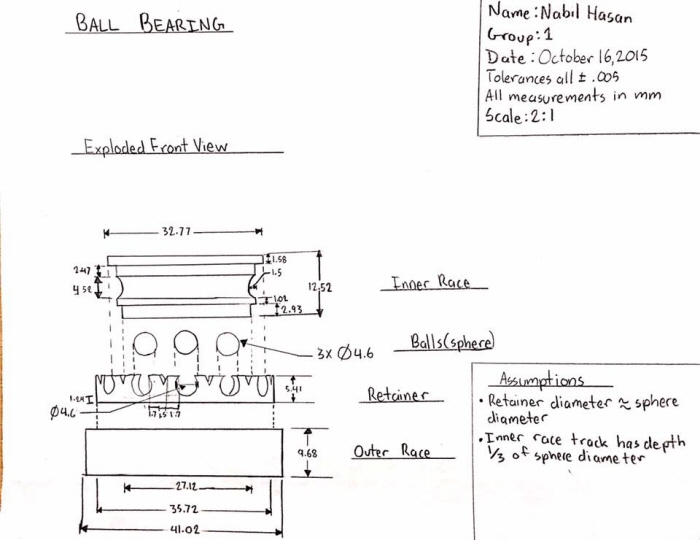 BALL BEARING
Name: Nabil Hasan
Group: 1
Date: October 16, 2015
Tolerances all ± .005
All measurements in mm
Scale: 2:1
Exploded Front View
32.77
1.58
2.47
1.5
4.52
12.52
Inner Race
1.02
2.93
3x Ø4.6
Balls (sphere)
5.41
Retainer
Ø4.6
1.7
1.7
9.68
Outer Race
27.12
35.72
41.02
Assumptions
• Retainer diameter ≈ sphere
diameter
• Inner race track has depth
1/3 of sphere diameter